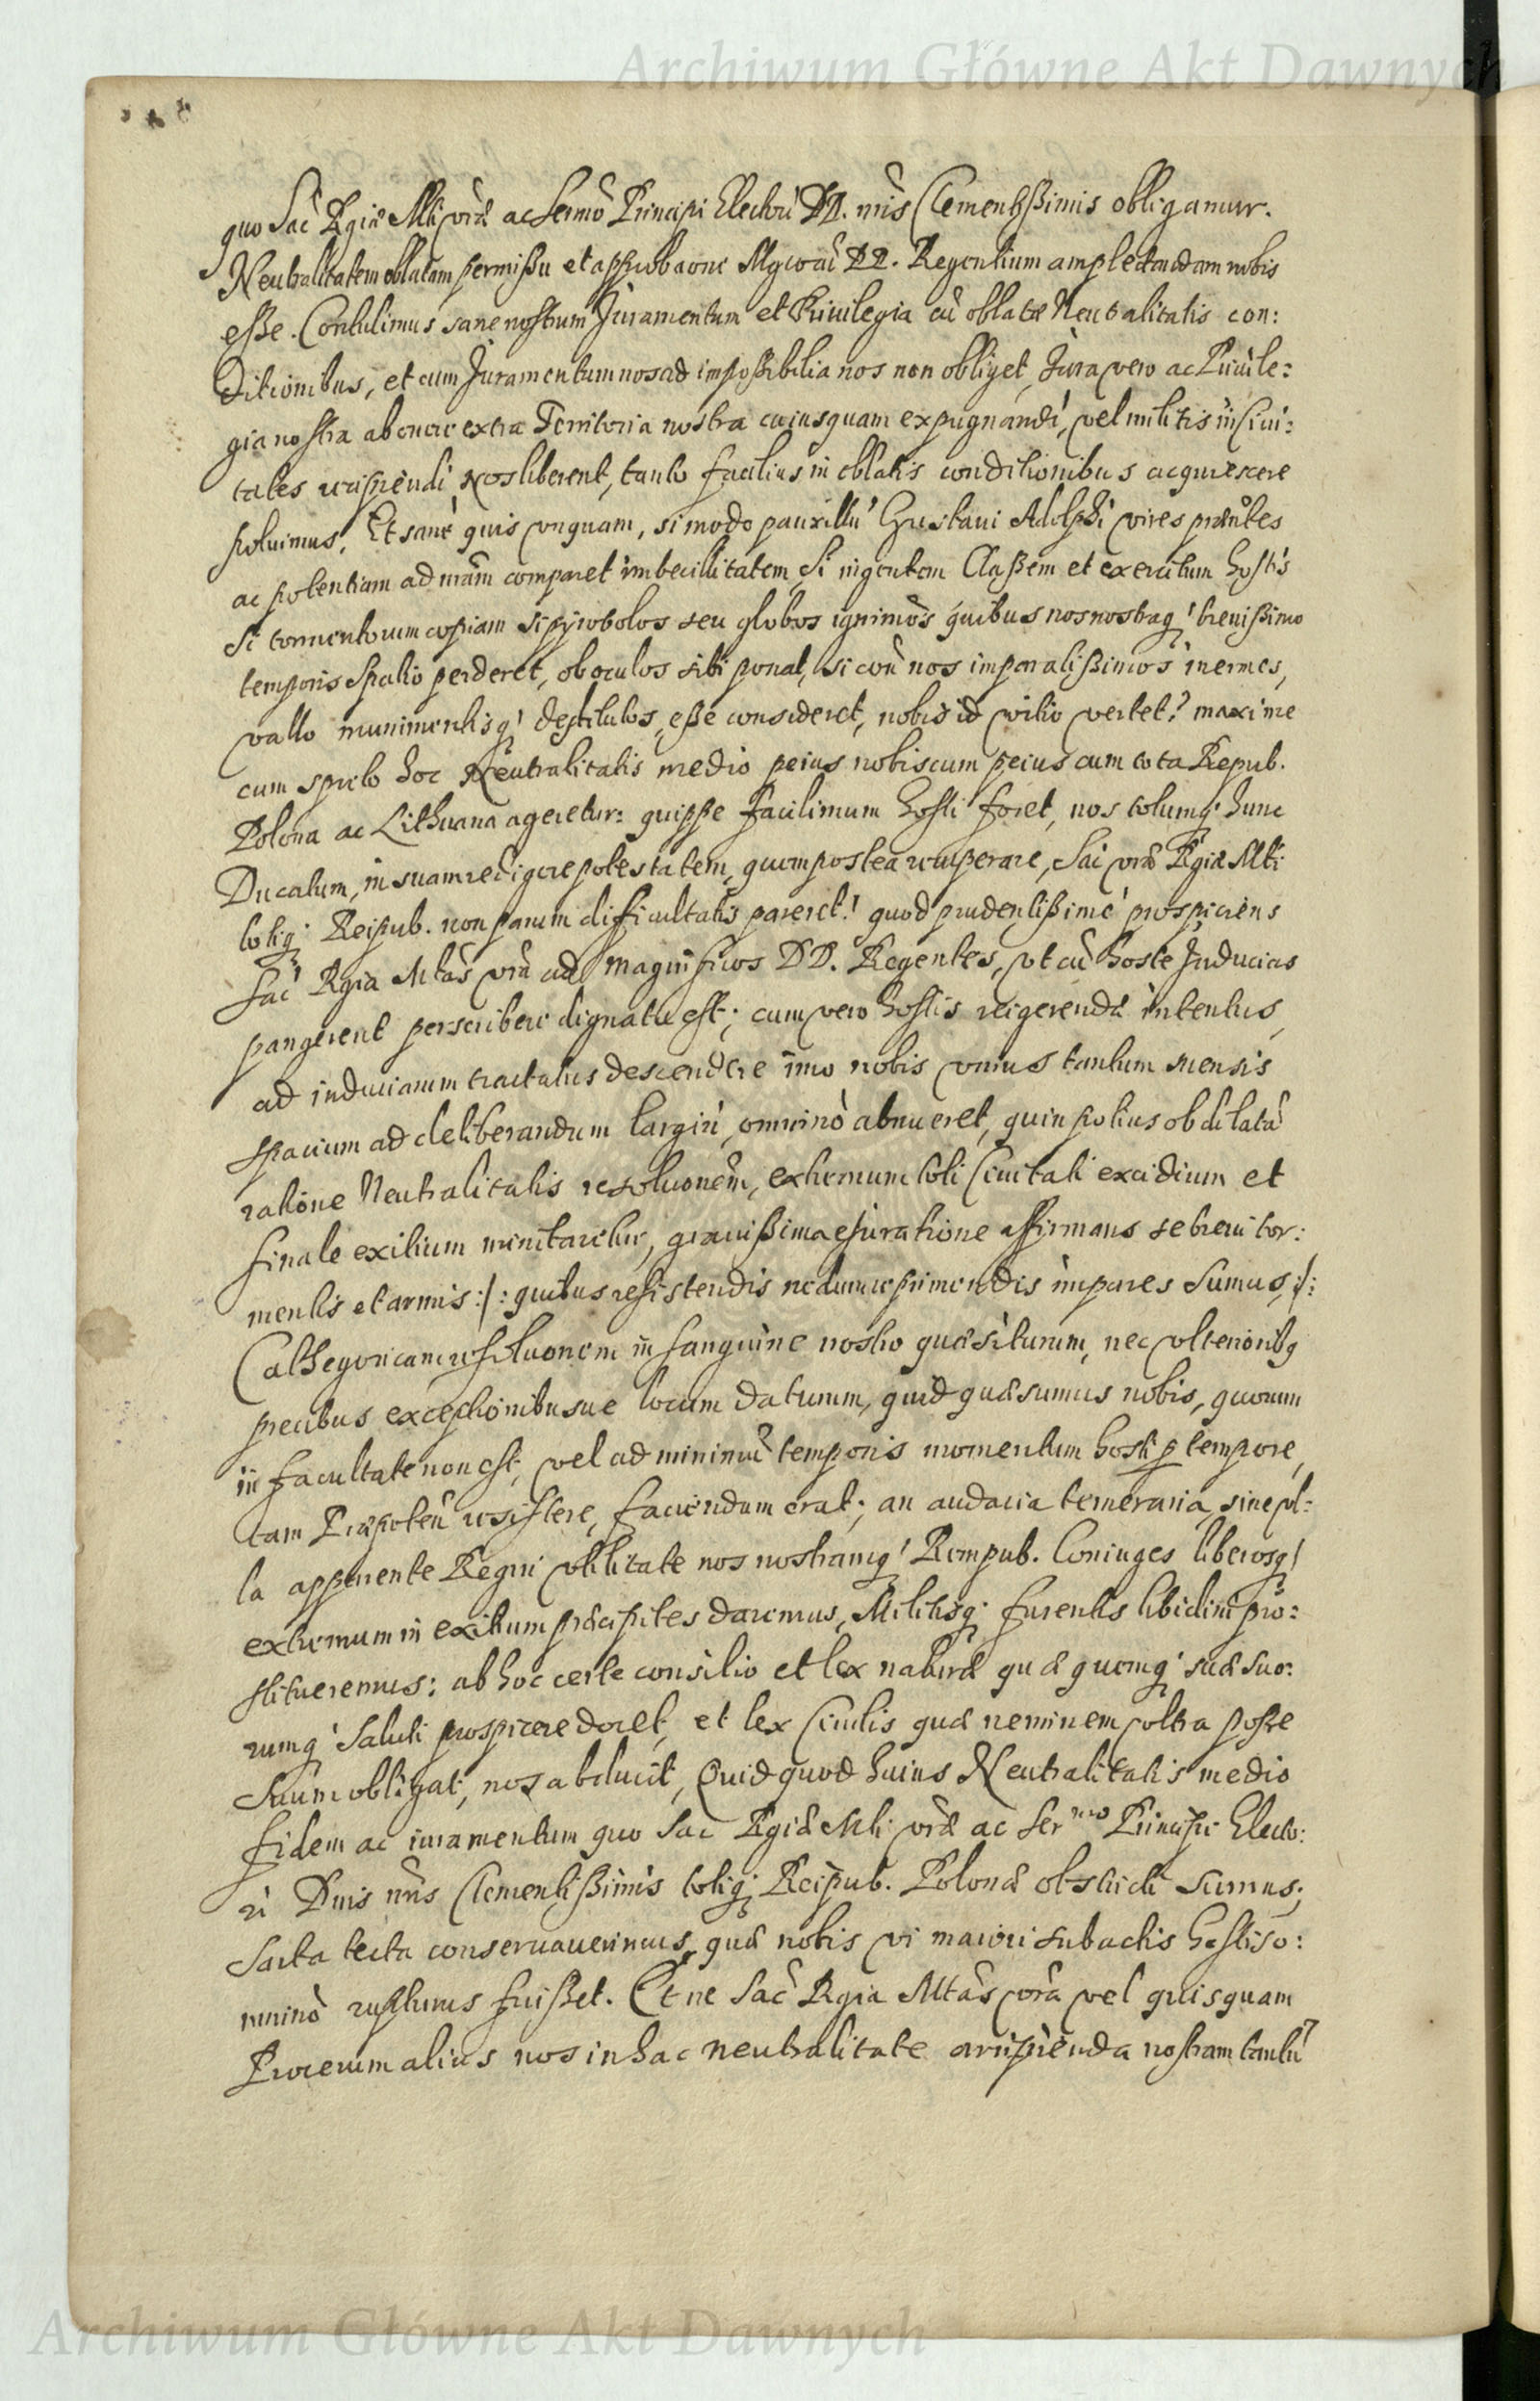 Archiwum Główne Akt Dawnych
quo Sac Rgiæ Mti vræ ac Sermo Principi Electori DD. nris Clementissimis obligamur.
Neutralitatem oblatam permissu et approbaone Mgcorū DD. Regentium amplectendam nobis
esse. Contulimus sane nostrum Juramentum et Priuilegia cū oblatæ Neutralitatis con:
ditionibus, et cum Juramentum nos ad impossibilia nos non obliget, Jura vero ac Priuile:
gia nostra ab onere extra Territoria nostra cuiusquam expugnandi, vel militis in Ciui:
tates recipiendi nos liberent, tanto facilius in oblatis conditionibus acquiescere
potuimus. Et sanè quis vnquam, si modo pauxillū Gustaui Adolphi vires præntes
ac potentiam ad nram comparet imbecillitatem, Si ingentem Classem et exercitum hostis
Si tormentorum copiam si pyrobolos seu globos ignimos quibus nos nostraq' breuissimo
temporis spatio perderet, ob oculos sibi ponat, si con nos imparatissimos inermes,
vallo munimentisq' destitutos esse consideret, nobis id vitio vertet? maxime
cum spreto hoc Neutralitatis medio peius nobiscum peius cum tota Repub.
Polona ac Lithuana ageretur: quippe facilimum hosti foret, nos totumq' hunc
Ducatum, in suam redigere potestatem, quem postea recuperare, Sac vræ Rgiæ Mti
totiq' Reipub. non parum difficultatis pareret! quod prudentissimè prospiciens
Sac Rgia Mtas vra ad magnificos DD. Regentes, vt cū hoste Inducias
pangerent perscribere dignata est; cum vero hostis rei gerendæ intentus,
ad induciarum tractatus descendere imo nobis vnius tantum mensis
spacium ad deliberandum largiri, omninò abnueret, quin potius ob dilatā
ratione Neutralitatis resoluonem, extremum toti Ciuitati excidium et
finale exilium minitaretur, grauissima ejuratione affirmans se breui tor:
mentis et armis :/: quibus resistendis nedum reprimendis impares Sumus, :/:
Cathegoricam resoluonem in sanguine nostro quæsiturum, nec vlterioribq
precibus exceptionibusue locum daturum, quid quæsumus nobis, quorum
in facultate non est, vel ad minimū temporis momentum hosti p tempore,
tam Præpoten resistere, faciendum erat; an audacia temeraria, sine vl:
la apparente Regni vtilitate nos nostramq' Rempub. Coniuges liberosq'
extremum in exitium præcipites daremus, Militisq' furentis libidini pro:
stitueremus: ab hoc certe consilio et lex naturæ quæ quemq' suæ suo:
rumq' Saluti prospicere docet, et lex Ciuilis quæ neminem vltra posse
Suum obligat, nos abducit, Quid quod huius Neutralitatis medio
fidem ac iuramentum quo Sac Rgiæ Mti vræ ac Ser mo Principi Electo:
ri Dnis nris Clementissimis totiq' Reipub. Polonæ obstricti Sumus;
Sarta tecta conseruauerimus, quæ nobis vi maiori subactis hostis o:
mninò rupturus fuisset. Et ne Sac Rgia Mtas vra vel quisquam
Procerum alius nos in hac neutralitate arripienda nostram tantū
Archiwum Główne Akt Dawnych